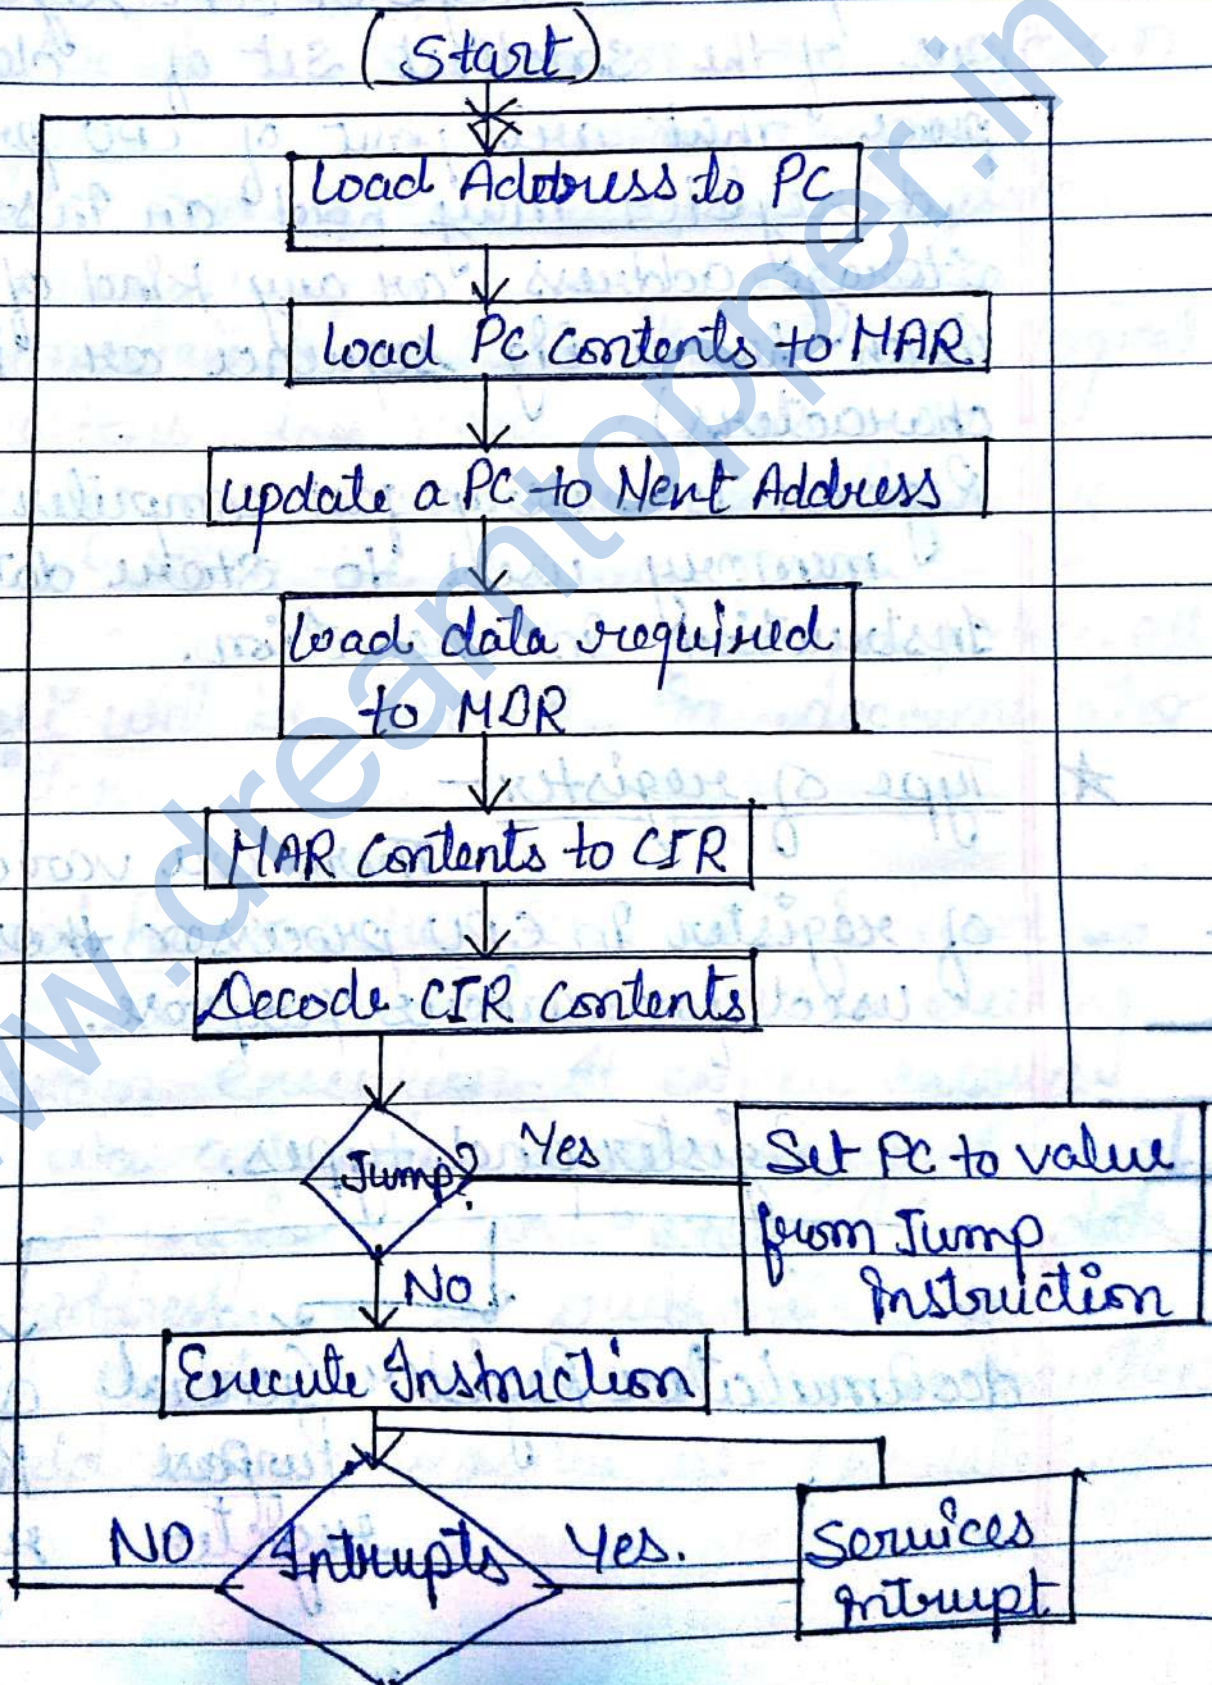 Start
Load Address to PC
Load PC Contents to MAR.
update a PC to Nent Address
Load data required
to MDR
MAR Contents to CIR
Decode CIR Contents
Jump?
Yes
Set PC to value
from Jump
Instruction
No.
Execute Instruction
NO
Intrupts
Yes.
Services
Intrupt.
www.dreamtopper.in